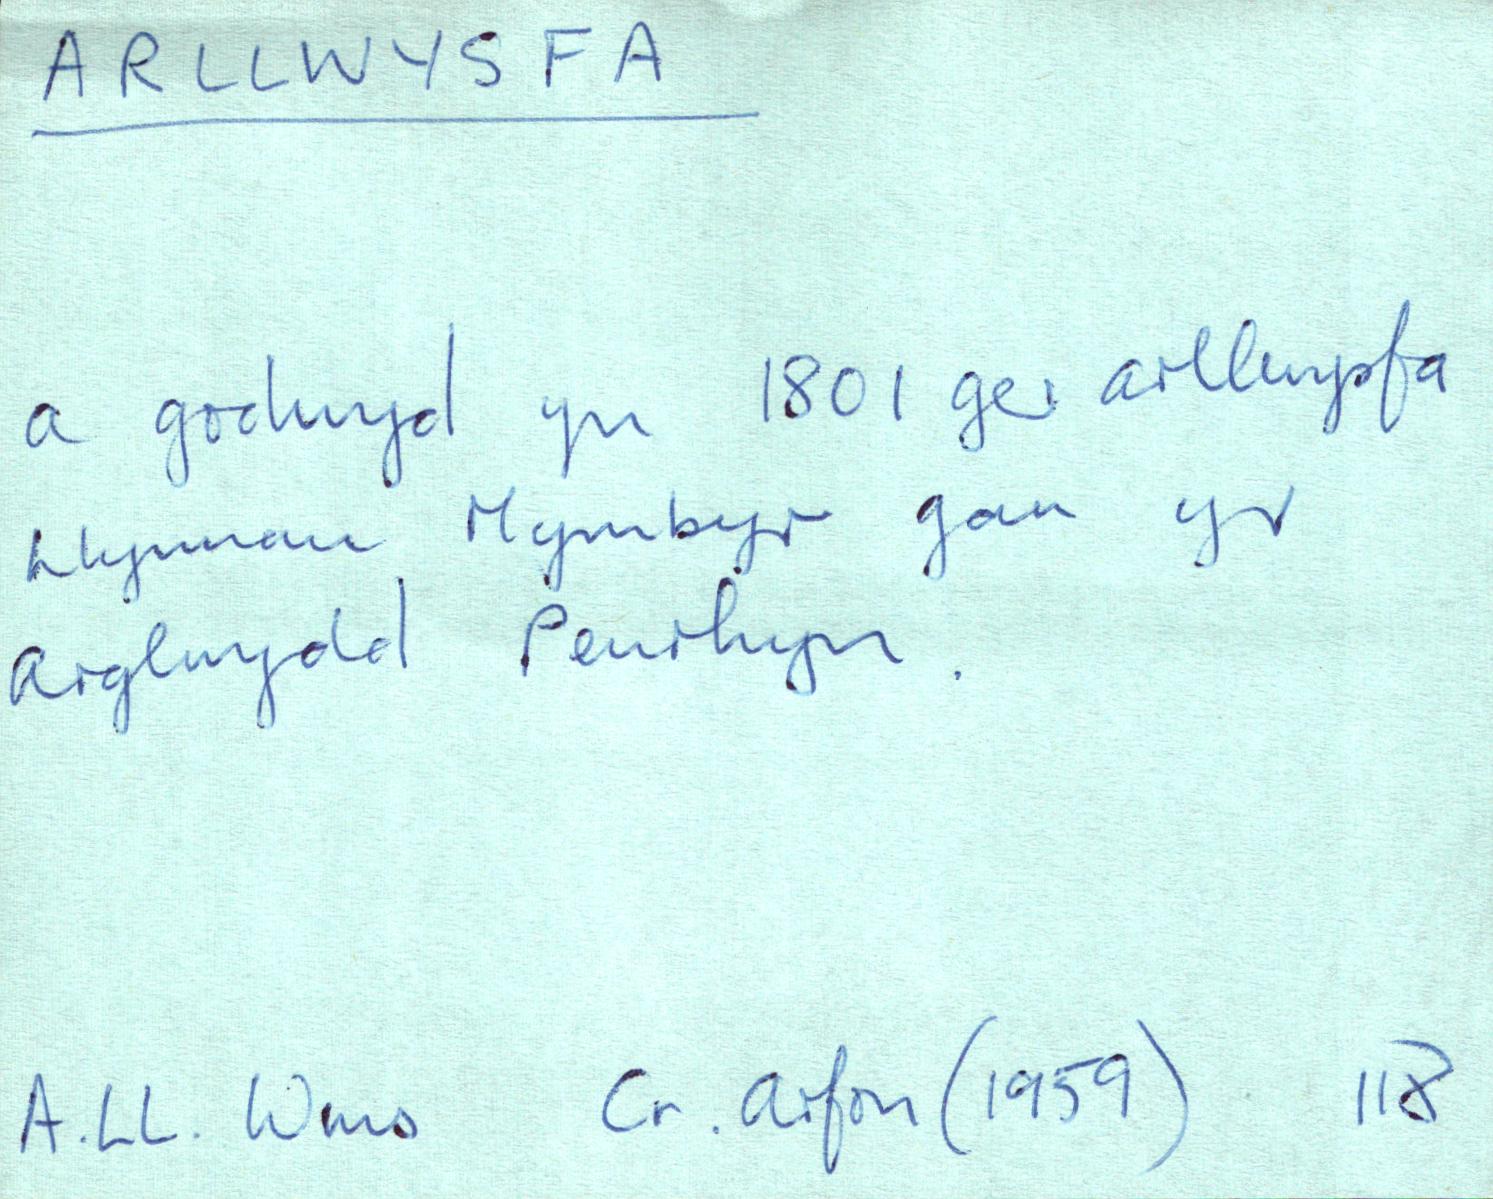 ARLLWYSFA
a godwyd yn 1801 ger arllwysfa
Llynnau Mymbyr gan yr
Arglwydd Penrhyn.
A.LL. Wms Cr. Arfon (1959) 118